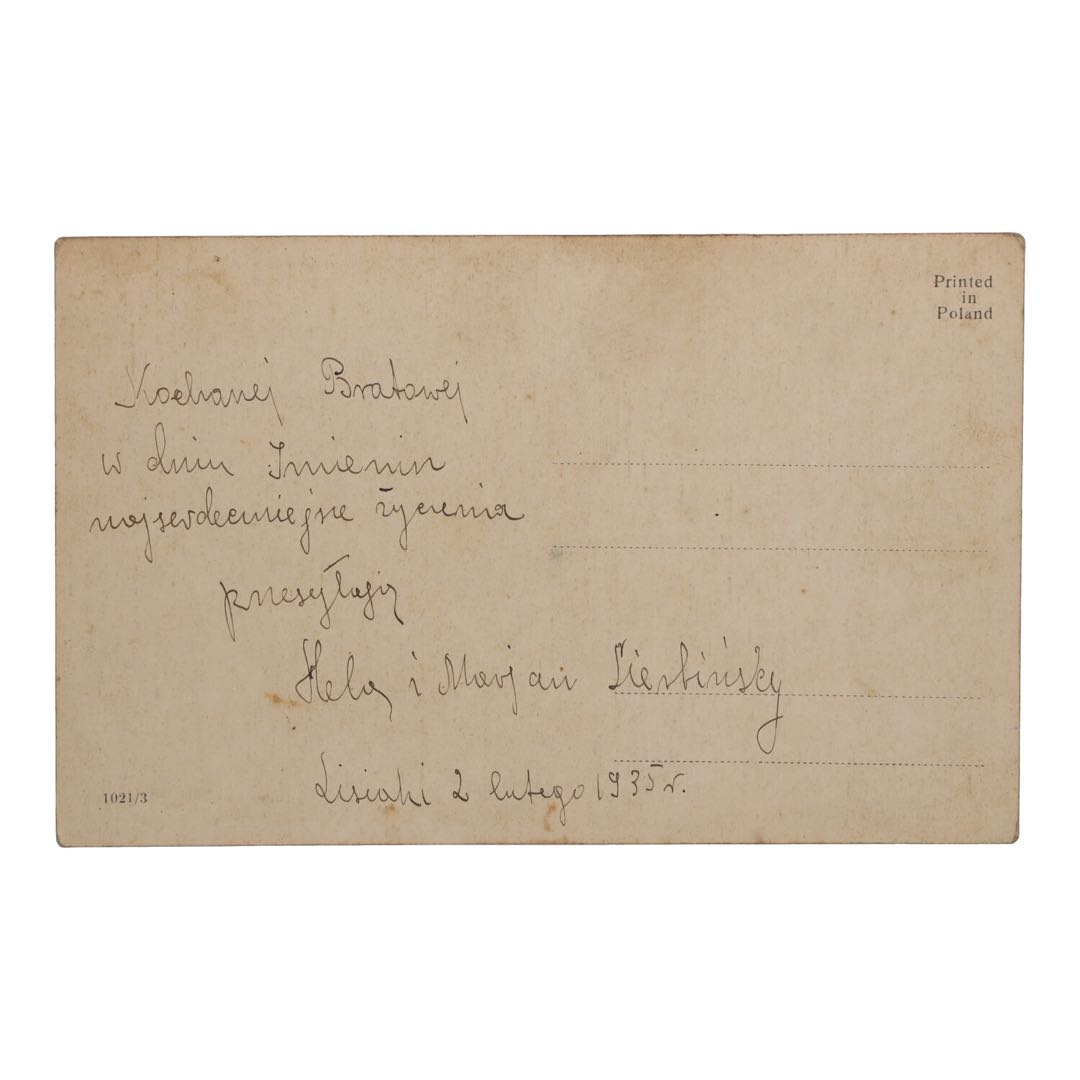 Printed
in
Poland
Kochanej Bratowej
w dniu Imienin
najserdeczniejsze życzenia
przesyłają
Hela i Marjan
Lisiaki 2 lutego 1935 r.
1021/3